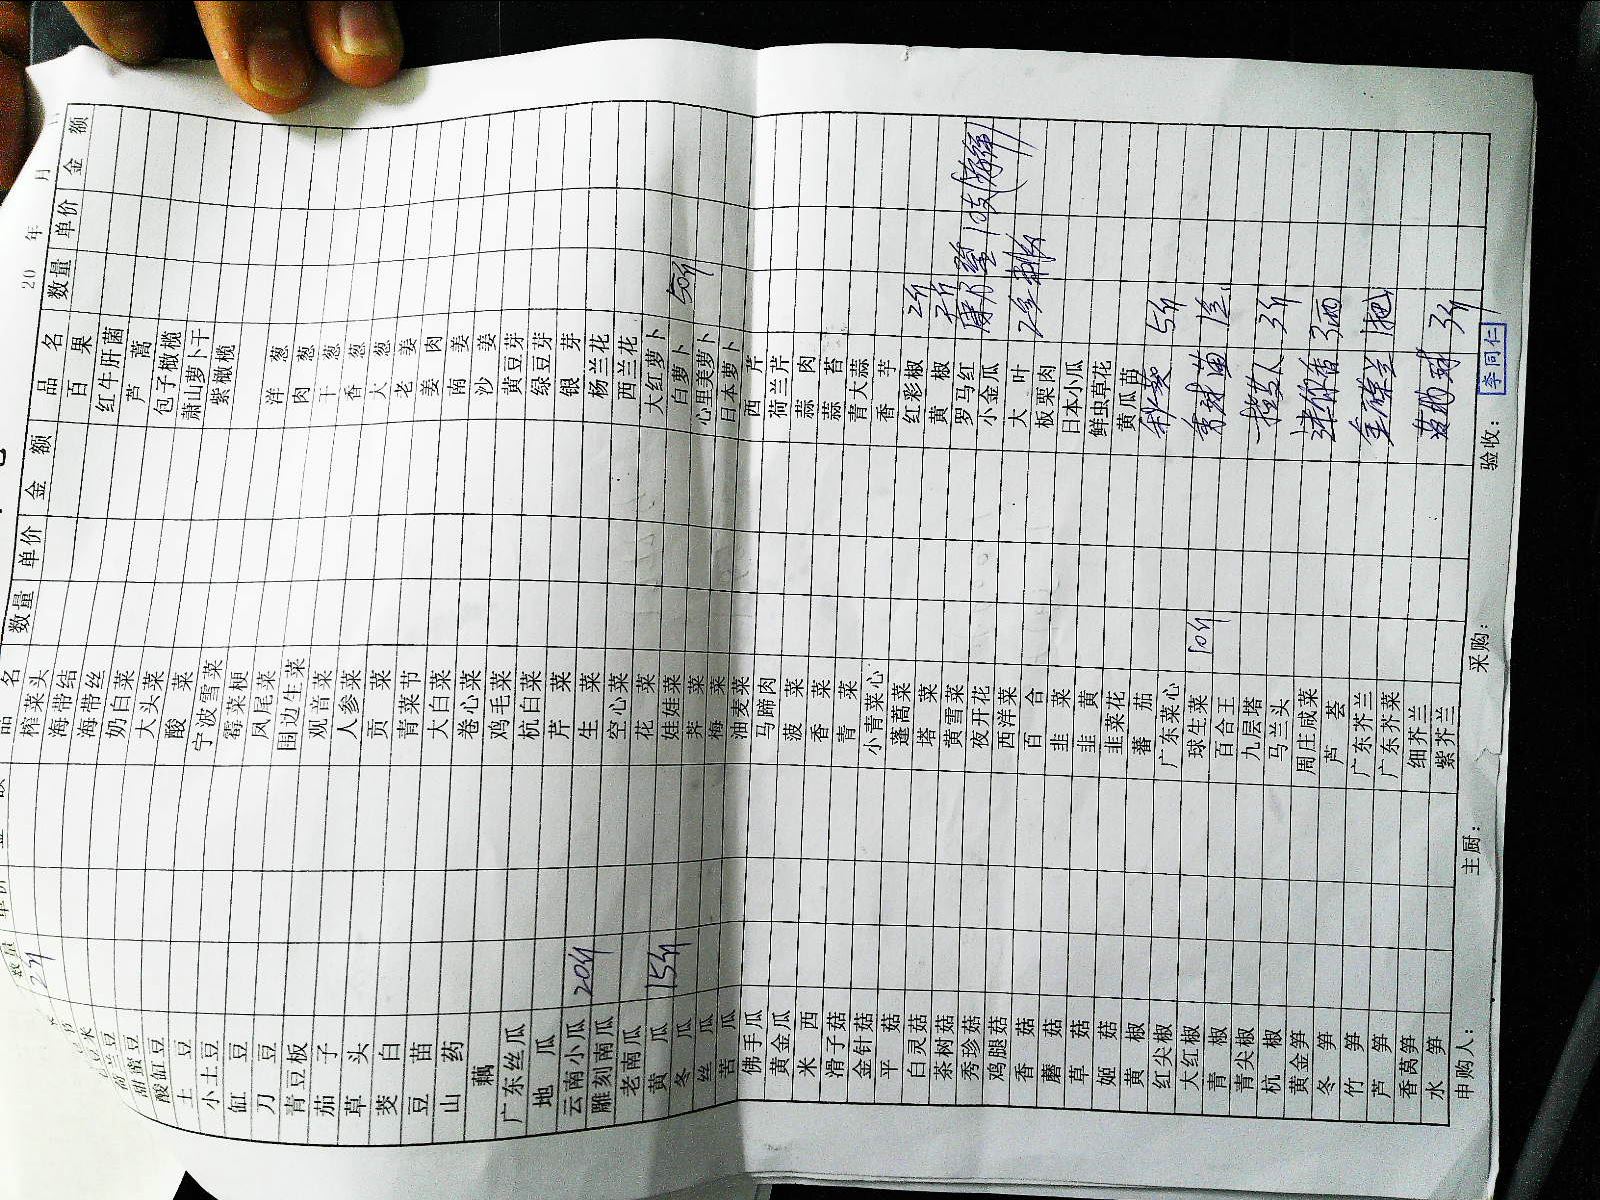 20 年 月
品名 数量 单价 金额
甜蜜豆
酸缸豆
土豆
小土豆
缸豆
刀豆
青豆板
茄子
草头
茭白
豆苗
山药
藕
广东丝瓜
地瓜
云南小瓜 20斤
雕刻南瓜
老南瓜
黄瓜 15斤
冬瓜
丝瓜
苦瓜
佛手瓜
黄金瓜
米西
滑子菇
金针菇
平菇
白灵菇
茶树菇
秀珍菇
鸡腿菇
香菇
蘑菇
草菇
姬菇
黄椒
红尖椒
大红椒
青椒
青尖椒
杭椒
黄金笋
冬笋
竹笋
芦笋
香莴笋
水笋
品名 数量 单价 金额
榨菜头
海带结
海带丝
奶白菜
大头菜
酸菜
宁波雪菜
霉菜梗
凤尾菜
围边生菜
观音菜
人参菜
贡菜
青菜节
大白菜
卷心菜
鸡毛菜
杭白菜
芹菜
生菜
空心菜
花菜
娃娃菜
荠菜
梅菜
油麦菜
马蹄肉
菠菜
香菜
青菜
小青菜心
蓬蒿菜
塔菜
黄雪菜
夜开花
西洋菜
百合
韭菜
韭黄
韭菜花
蕃茄
广东菜心
球生菜 10斤
百合王
九层塔
马兰头
周庄咸菜
芦荟
广东芥兰
广东芥菜
细芥兰
紫芥兰
品名 数量 单价 金额
百果
红牛肝菌
芦蒿
包子橄榄
萧山萝卜干
紫橄榄
洋葱
肉葱
干葱
香葱
大葱
老姜
姜肉
南姜
沙姜
黄豆芽
绿豆芽
银芽
杨兰花
西兰花
大红萝卜
白萝卜 50斤
心里美萝卜
日本萝卜
西芹
荷兰芹
蒜肉
蒜苔
青大蒜
香芋
红彩椒 2斤
黄椒 2斤
罗马红
小金瓜
大叶
板栗肉
日本小瓜
鲜虫草花
黄瓜苗
秋葵 5斤
3斤
1把
3斤
申购人： 主厨： 采购： 验收： 李同仁